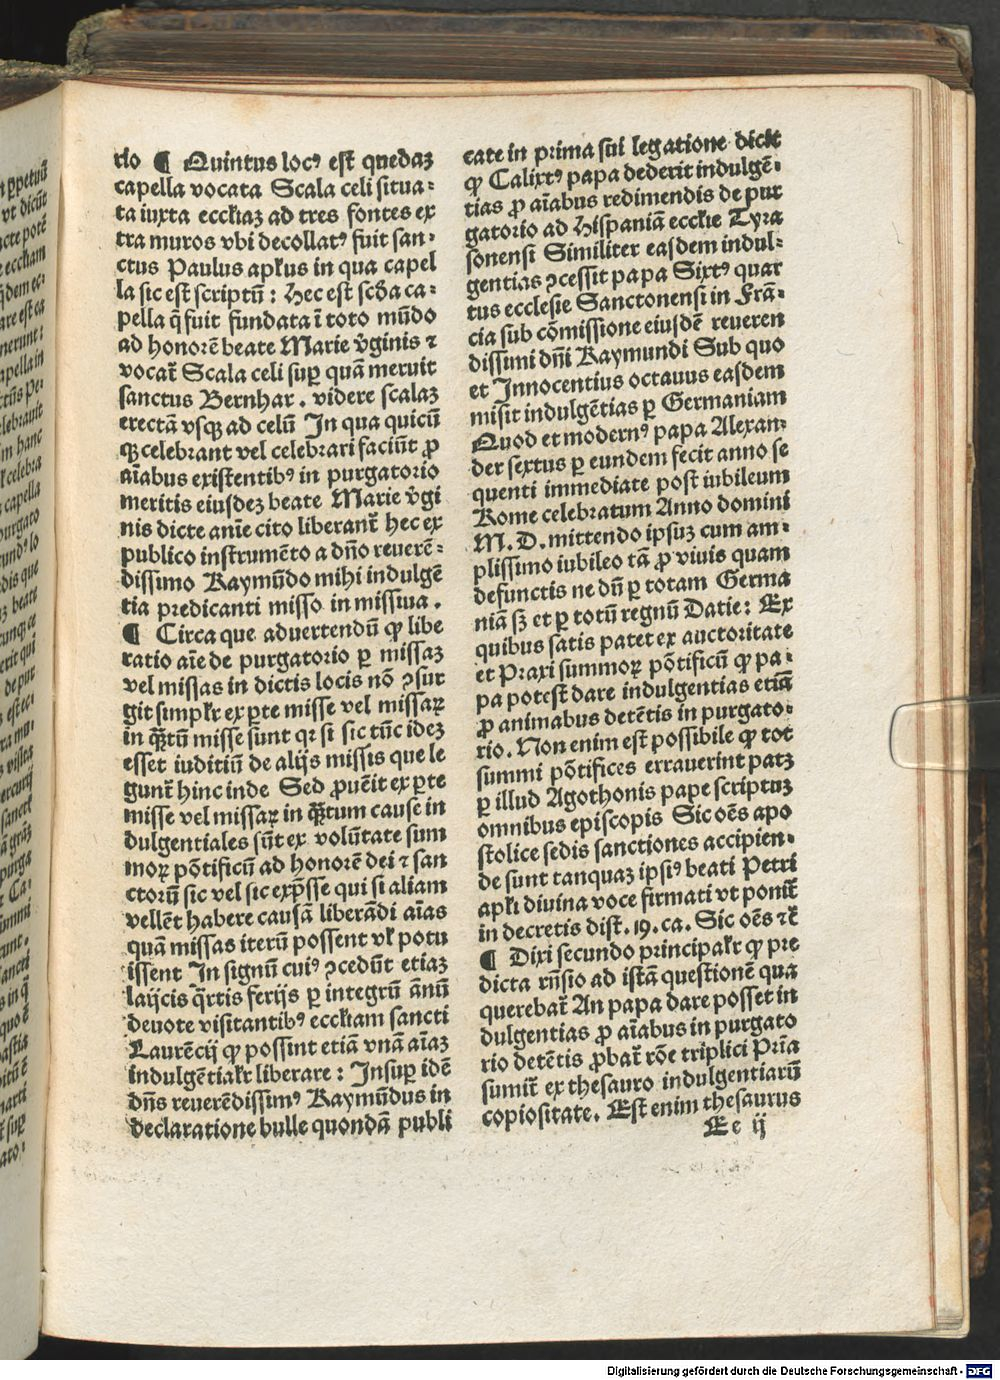 rio ¶ Quintus locꝰ est quedaꝫ
capella vocata Scala celi situa⸗
ta iuxta eccłiaꝫ ad tres fontes ex
tra muros vbi decollatꝰ fuit san⸗
ctus Paulus apłus in qua capel
la sic est scriptū: Hec est scd̄a ca⸗
pella q̄ fuit fundata ī toto mūdo
ad honorē beate Marie v̄ginis ⁊
vocat̄ Scala celi suꝑ quā meruit
sanctus Bernhar. videre scalaꝫ
erectā vsqꝫ ad celū In qua quicū
qꝫ celebrant vel celebrari faciūt ꝓ
aīabus existentibꝰ in purgatorio
meritis eiusdeꝫ beate Marie v̄gi
nis dicte anīe cito liberant̄ Hec ex
publico instrumēto a dn̄o reuerē⸗
dissimo Raymūdo mihi indulgē
tia predicanti misso in missiua.
¶ Circa que aduertendū ꝙ libe
ratio aīe de purgatorio ꝑ missaꝫ
vel missas in dictis locis nō ꝯsur
git simpłr ex ꝑte misse vel missaꝝ
in qꝫ̄tū misse sunt qꝛ si sic tūc ideꝫ
esset iuditiū de alijs missis que le
gunt̄ hinc inde Sed ꝓuēit ex ꝑte
misse vel missaꝝ in qꝫ̄tum cause in
dulgentiales sūt ex volūtate sum
moꝝ pōtificū ad honorē dei ⁊ san
ctorū sic vel sic exp̄sse qui si aliam
vellēt habere causā liberādi aīas
quā missas iterū possent vł potu
issent In signū cuiꝰ ꝯcedūt etiaꝫ
laijcis q̄rtis ferijs ꝑ integrū ānū
deuote visitantibꝰ eccłiam sancti
Laurēcij ꝙ possint etiā vnā aīaꝫ
indulgētiałr liberare: Insuꝑ idē
dn̄s reuerēdissimꝰ Raymūdus in
declaratione bulle quondā publi
cate in prima sui legatione dicit
ꝙ Calixtꝰ papa dederit indulgē⸗
tias ꝓ aīabus redimendis de pur
gatorio ad Hispaniā eccłie Tyra
sonensi Similiter easdem indul⸗
gentias ꝯcessit papa Sixtꝰ quar
tus ecclesie Sanctonensi in Frā⸗
cia sub cōmissione eiusdē reueren
dissimi dn̄i Raymundi Sub quo
et Innocentius octauus easdem
misit indulgētias ꝑ Germaniam
Quod et modernꝰ papa Alexan⸗
der sextus ꝑ eundem fecit anno se
quenti immediate post iubileum
Rome celebratum Anno domini
M. D. mittendo ipsuꝫ cum am⸗
plissimo iubileo tā ꝓ viuis quam
defunctis ne dū ꝑ totam Germa
niā sꝫ et ꝑ totū regnū Datie: Ex
quibus satis patet ex auctoritate
et Praxi summoꝝ pōtificū ꝙ pa⸗
pa potest dare indulgentias etiā
ꝓ animabus detētis in purgato⸗
rio. Non enim est possibile ꝙ tot
summi pōtifices errauerint patꝫ
ꝑ illud Agothonis pape scriptuꝫ
omnibus episcopis Sic oēs apo
stolice sedis sanctiones accipien⸗
de sunt tanquaꝫ ipsiꝰ beati Petri
apłi diuina voce firmati vt ponit̄
in decretis dist. 19. ca. Sic oēs ⁊ć
¶ Dixi secundo principałr ꝙ pre
dicta rn̄sio ad istā questionē qua
querebat̄ An papa dare posset in
dulgentias ꝓ aīabus in purgato
rio detētis ꝓbat̄ rōe triplici Prīa
sumit̄ ex thesauro indulgentiarū
copiositate. Est enim thesaurus
Ee ij
Digitalisierung gefördert durch die Deutsche Forschungsgemeinschaft - DFG